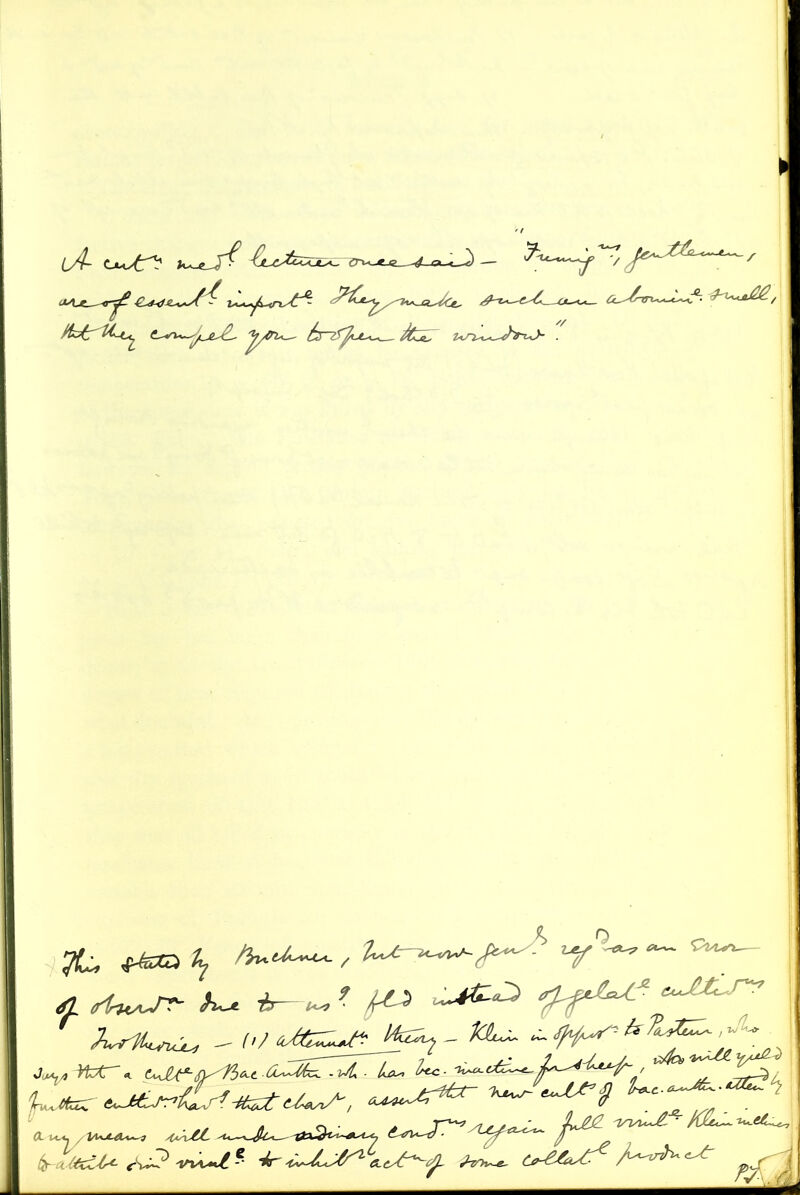 A certn medl lecturer once said — "Fumigns, gentlemen,
are of essentl importe. They make such an abomine smell,
tht they compel you to open the window".
This stated by Buchner, but now genl regd as an error
of observn due to usg fld instead of gelate cultivns
Two theories — (1) attenuatn theory — Klein in opposn to Pasteur, who
says tht a culte of Bac. Anthr. wh. has bec. inactive for sheep, who will yield
further cultivns havg that charr, asserts tht new culte of bac. anthr. attend by
any means will under ordinary condns regain full virule. Klein inclines
to attribe dimd virule to inhibl actn of some collatl product